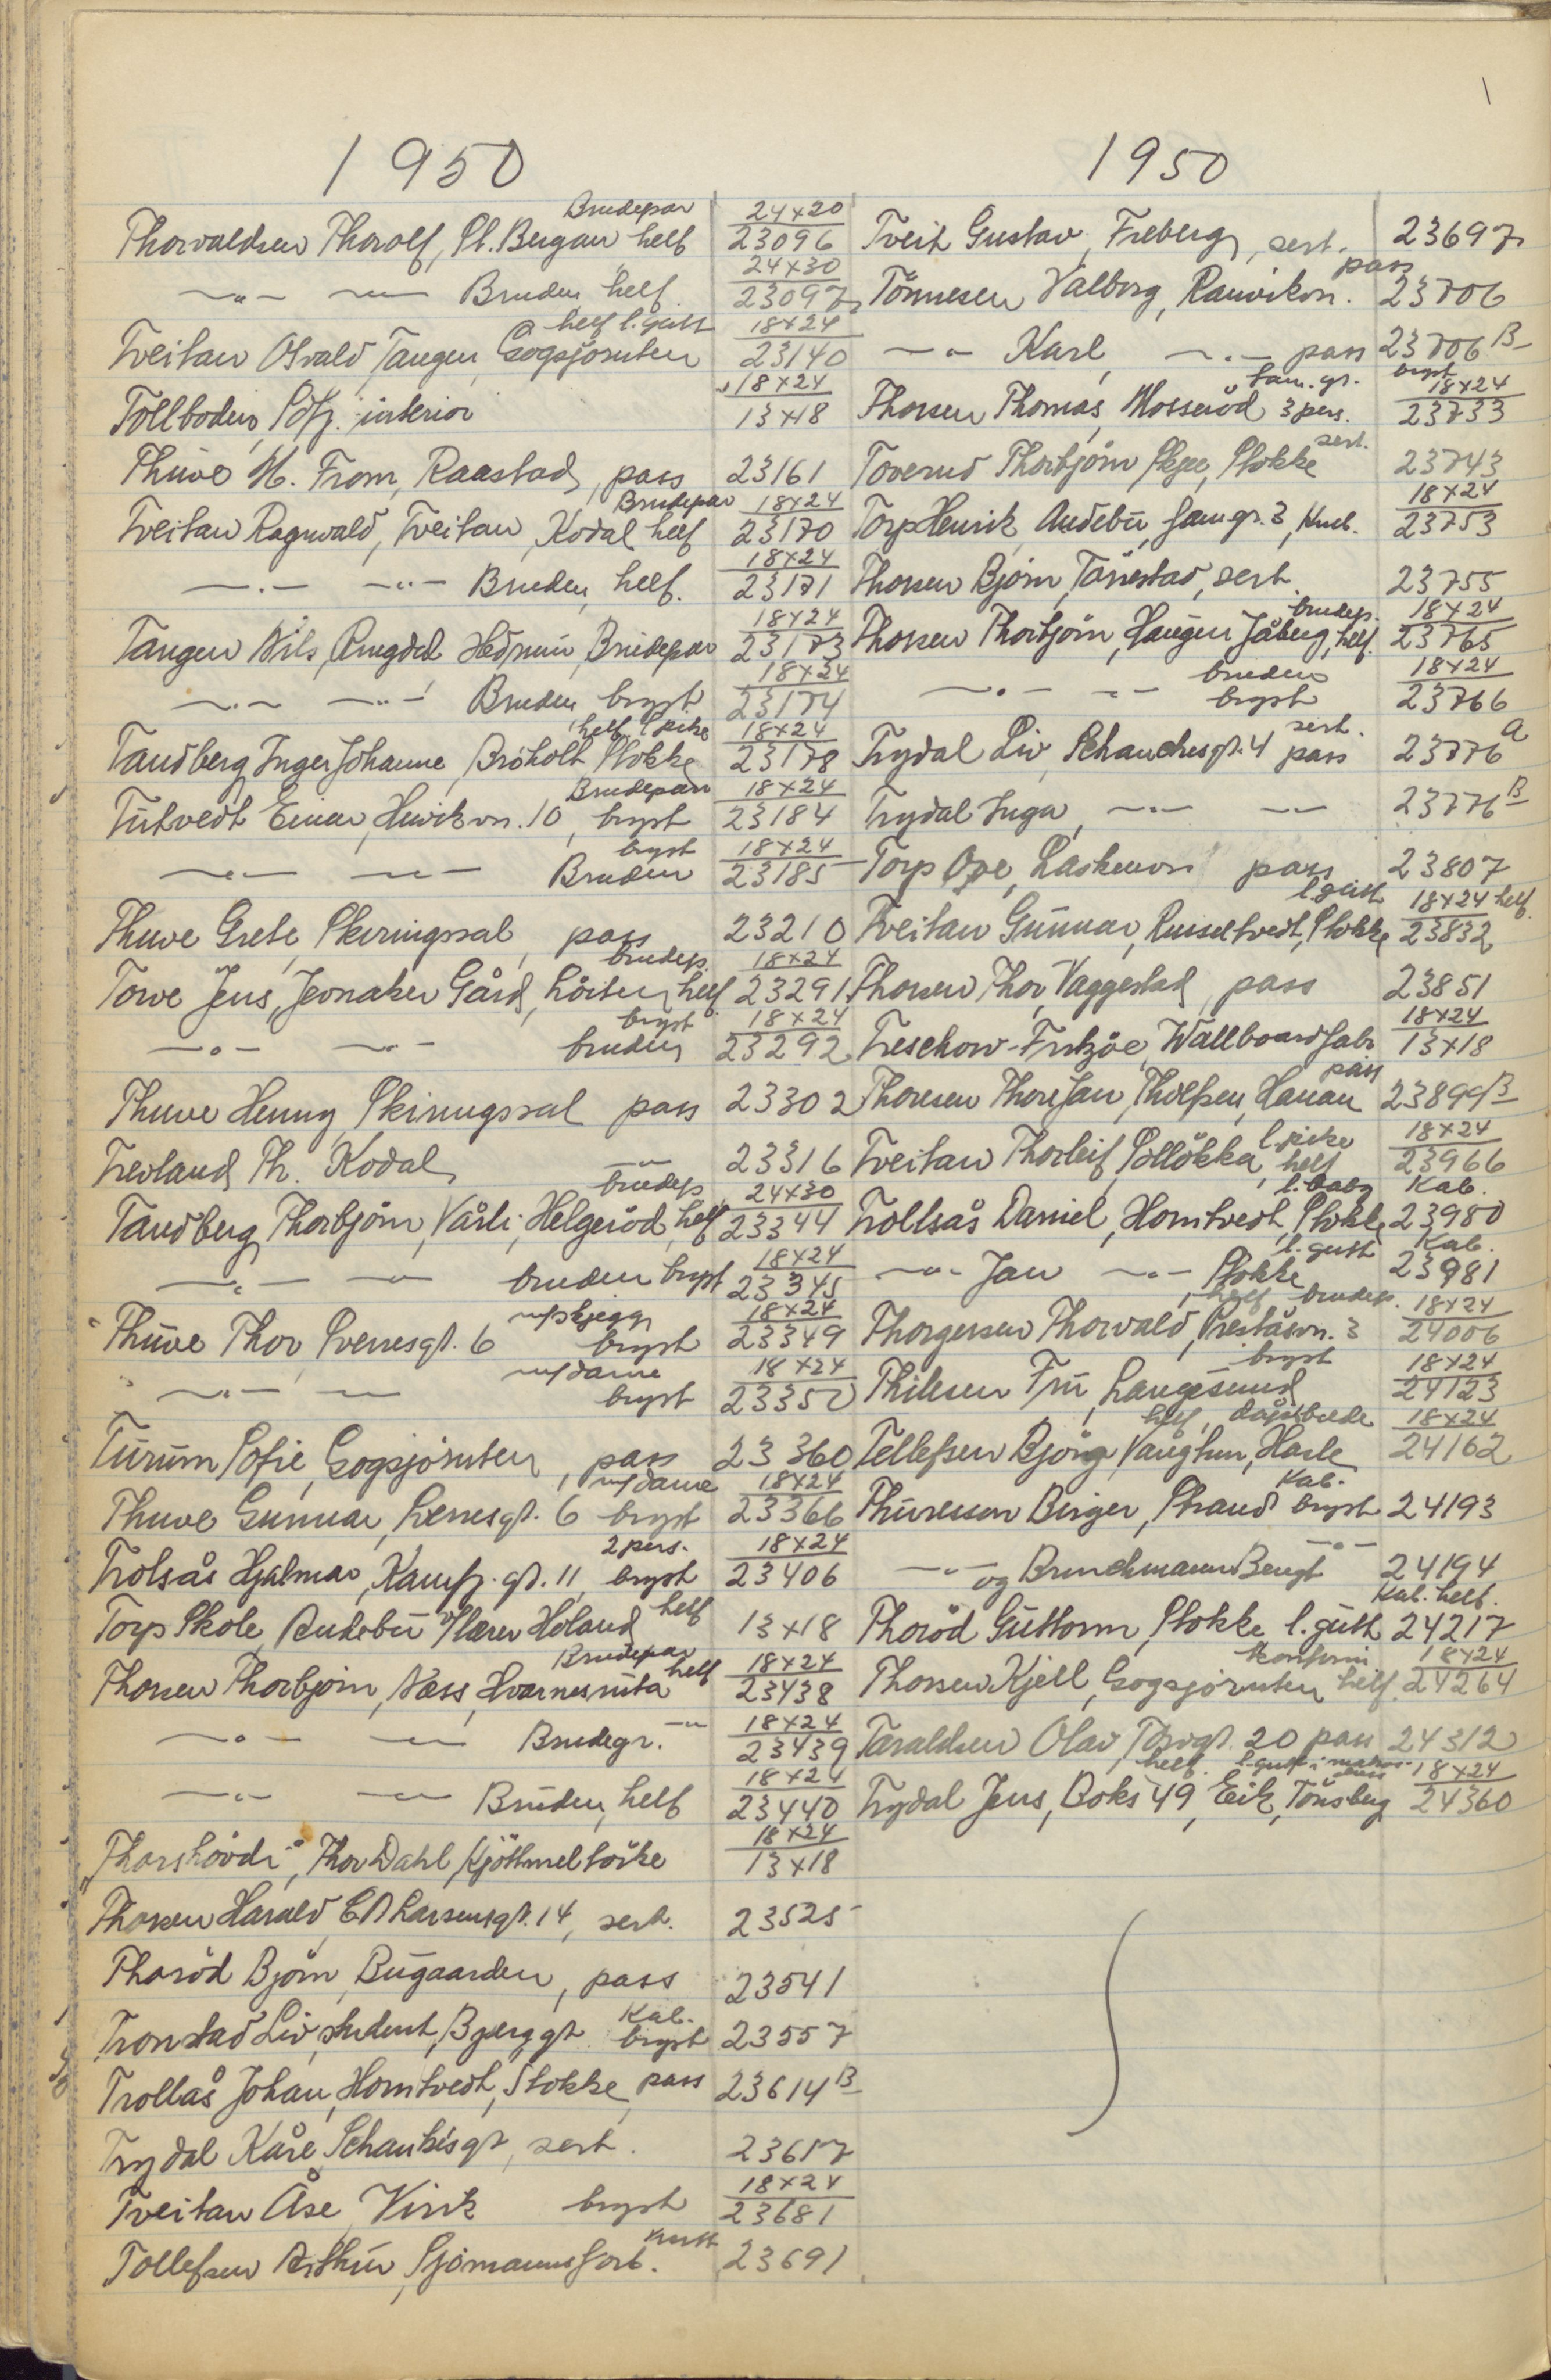 1950
Thorvaldsen Thorolf, St. Bergan helf Brudepar 24x20 23096
—„— —„— Bruden helf. 24x30 23097
Tveitan Osvald, Tangen, Gogsjöruten helf l. gutt 18x24 23140
Tollboden, Sdfj. interiör 18x24 13x18
Thuve M. From, Raastad, pass 23161
Tveitan Ragnvald, Tveitan, Kodal helf Brudepar 18x24 23170
—„— —„— Bruden, helf. 18x24 23171
Tangen Nils, Ringdal, Hedrum, Brudepar 18x24 23173
—„— —„— Bruden bryst 18x24 23174
Tandberg Inger Johanne, Bröholt, Stokke helf l. pike 18x24 23178
Tutvedt Einar, Huvikvn. 10, bryst Brudepar 18x24 23184
—„— —„— Bruden bryst 18x24 23185
Thuve Grete, Skiringssal, pass 23210
Torve Jens, Jernaker Gård, Löiten, helf brudep. 18x24 23291
—„— —„— bruden bryst 18x24 23292
Thuve Henny, Skiringssal pass 23302
Trevland Th. Kodal —„— 23316
Tandberg Thorbjörn, Vårli, Helgeröd, helf brudep 24x30 23344
—„— —„— bruden bryst 18x24 23345
Thuve Thor, Sverresgt. 6 bryst m/skjegg 18x24 23349
—„— —„— bryst m/dame 18x24 23350
Turum Sofie, Gogsjöruten, pass 23360
Thuve Gunnar, Sverresgt. 6 bryst m/dame 18x24 23366
Trolsås Hjalmar, Kamfj. gt. 11, bryst 2 pers. 18x24 23406
Torp Skole, Andebu v/lærer Höland helf 13x18
Thorsen Thorbjörn, Næss, Hvarnesruta helf Brudepar 18x24 23438
—„— —„— Brudegr. —„— 18x24 23439
—„— —„— Bruden, helf 18x24 23440
„Thorshövdi", Thor Dahl, Kjöttmeltörke 18x24 13x18
Thorsen Harald, C A Larsensgt. 14, sert. 23525
Thoröd Björn, Bugaarden, pass 23541
Tronstad Liv, student, Bjerggt. bryst Kab. 23557
Trollås Johan, Horntvedt, Stokke, pass 23614 B
Trydal Kåre, Schankisgt, sert. 23617
Tveitan Åse, Virik bryst 18x24 23681
Tollefsen Arthur, Sjömannsforb. 23691
1950
Tveit Gustav, Freberg, sert. 23697
Tönnesen Valborg, Ranvikvn. pass 23706
—„— Karl, —„— pass 23706 B
Thorsen Thomas, Mosseröd 3 pers. fam. gr. bryst 18x24 23733
Toverud Thorbjörn, Skjee, Stokke sert. 23743
Torp Henrik, Andebu, fam gr. 3, kneb. 18x24 23753
Thorsen Björn, Tönestad, sert. 23755
Thorsen Thorbjörn, Haugen Jåberg, helf. brudep. 18x24 23765
—„— —„— bruden bryst 18x24 23766
Trydal Liv, Schanchesgt. 4 pass sert. 23776 a
Trydal Inga, —„— —„— 23776 B
Torp Ove, Laskenvn pass 23807
Tveitan Gunnar, Russeltvedt, Stokke l. gutt 18x24 helf 23832
Thorsen Thor, Vaggestad, pass 23851
Treschow-Fritzöe, Wallboardfabr 18x24 13x18
Thoresen Thore Jan, Tholfsen, Hauan pass 23899 B
Tveitan Thorleif, Sollökka, helf l. pike 18x24 23966
Trollsås Daniel, Horntvedt, Stokke l. baby Kab. 23980
—„— Jan —„— Stokke l. gutt Kab. 23981
Thorgersen Thorvald, Preståsvn. 3 helf brudep. 18x24 24006
Thilesen Fru, Langesund bryst 18x24 24123
Tellefsen Bjørg Vaughun, Hasle helf, dåpsbilde 18x24 24162
Thuresson Birger, Strand bryst Kab. 24193
—„— og Brinchmann Bengt —„— 24194
Thoröd Guttorm, Stokke l. gutt Kab. helf. 24217
Thorsen Kjell, Gogsjöruten helf. konfirm 18x24 24264
Taraldsen Olav, Torvgt. 20 pass 24312
Trydal Jens, Boks 49, Eik, Tönsberg helf. l. gutt i matros- 18x24 24360